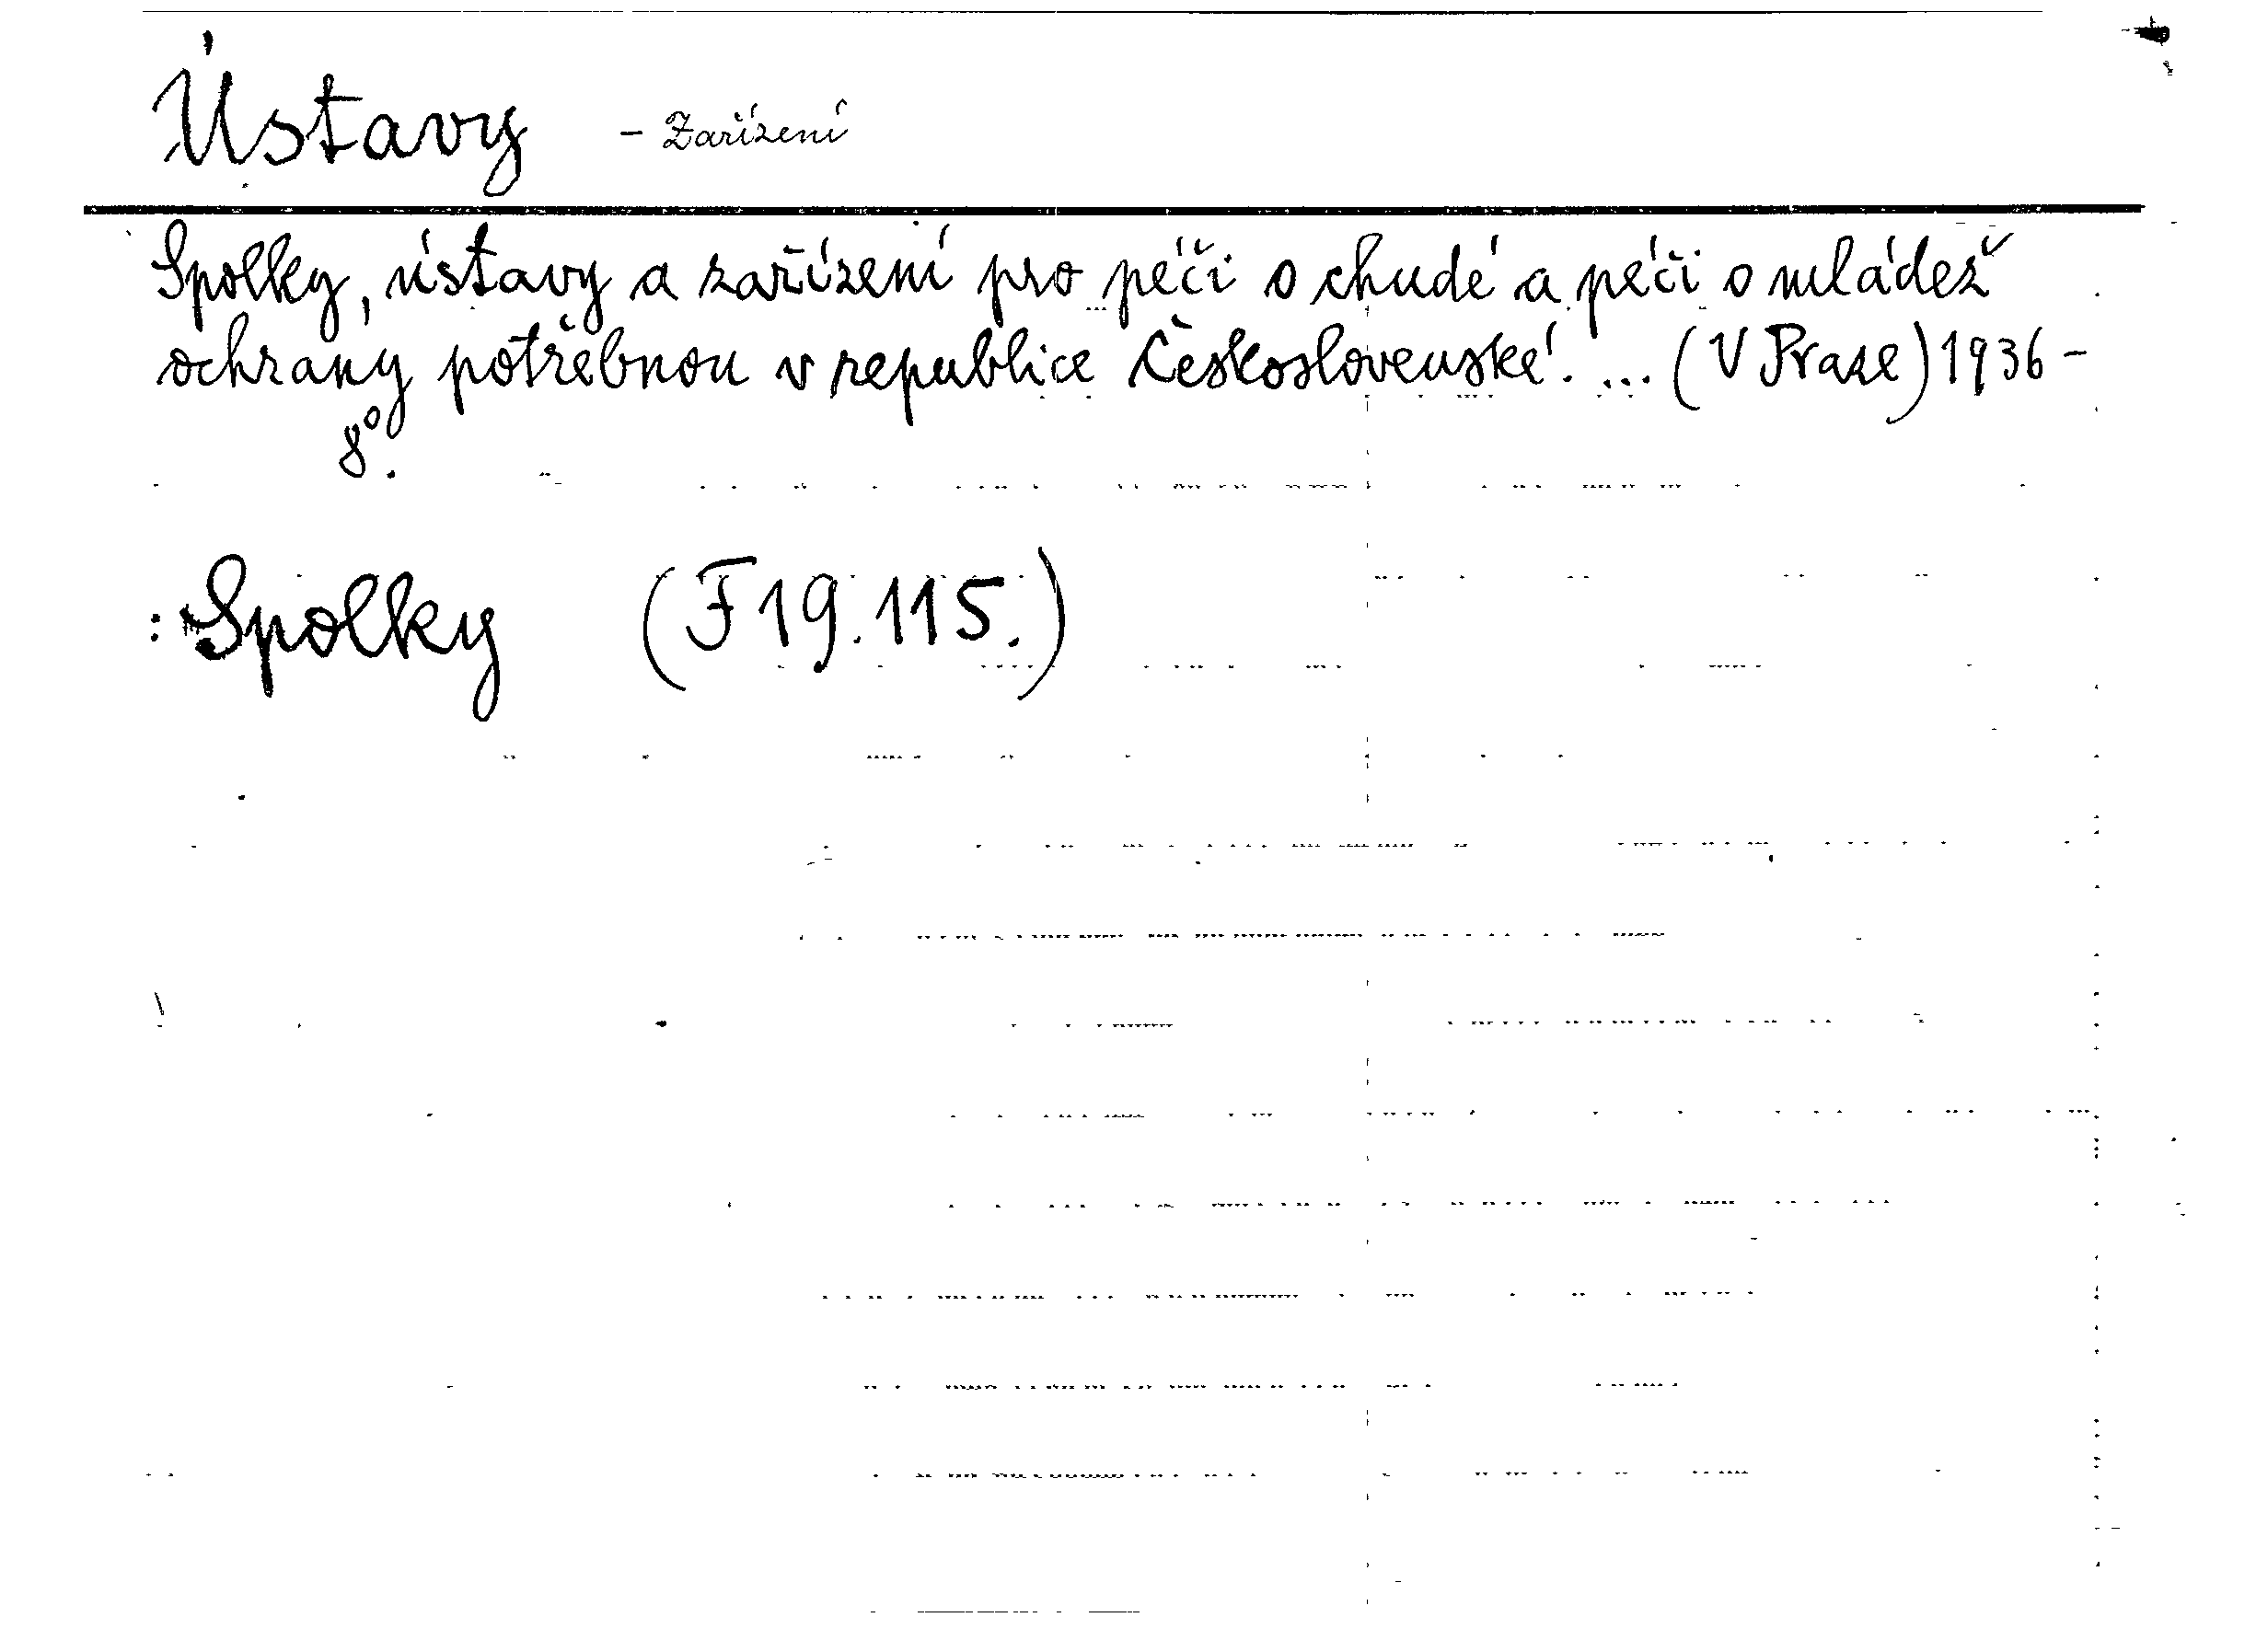 Ústavy - Zařízení
Spolky, ústavy a zařízení pro péči o chudé a péči o mládež
ochrany potřebnou v republice Československé. ... (V Praze) 1936 -
8°.
: Spolky (F 19.115.)